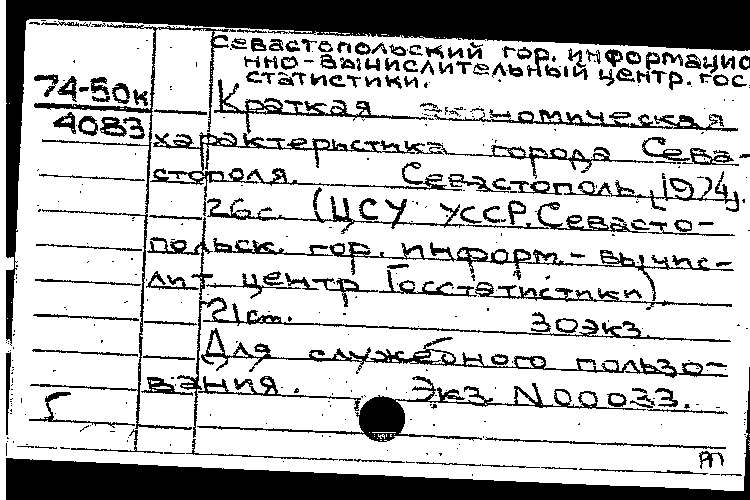 Севастопольский гор. информацио
нно-вычислительный центр. гос
статистики.
74-50к
4083
Краткая экономическая
характеристика города Сева-
стополя. Севастополь, [1974].
26 с. (ЦСУ УССР. Севасто-
польск. гор. информ.- вычис-
лит. центр Госстатистики).
21 см. 30 экз.
Для служебного пользо-
вания. Экз. N 00033.
5